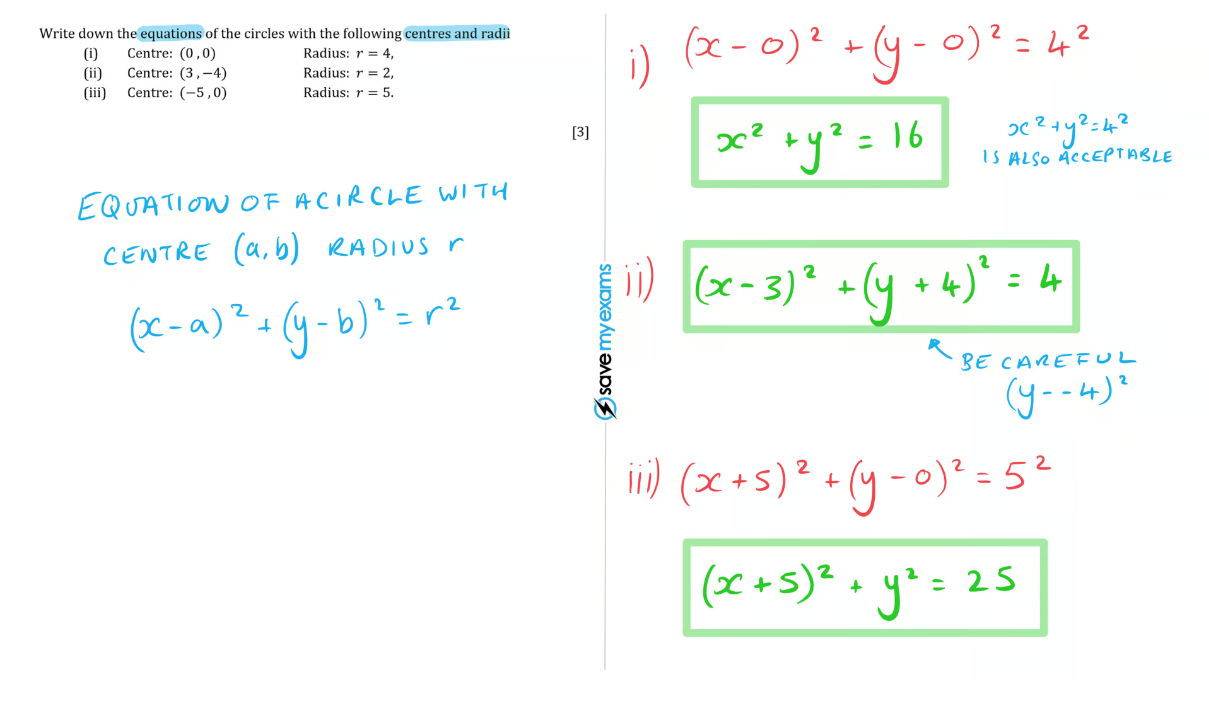 Write down the equations of the circles with the following centres and radii
(i) Centre: (0,0) Radius: r = 4,
(ii) Centre: (3,−4) Radius: r = 2,
(iii) Centre: (−5,0) Radius: r = 5.
[3]
EQUATION OF A CIRCLE WITH
CENTRE (a,b) RADIUS r
(x-a)² + (y-b)² = r²
savemyexams
i) (x-0)² + (y-0)² = 4²
x² + y² = 16
x²+y²=4²
IS ALSO ACCEPTABLE
ii) (x-3)² + (y+4)² = 4
BE CAREFUL
(y--4)²
iii) (x+5)² + (y-0)² = 5²
(x+5)² + y² = 25